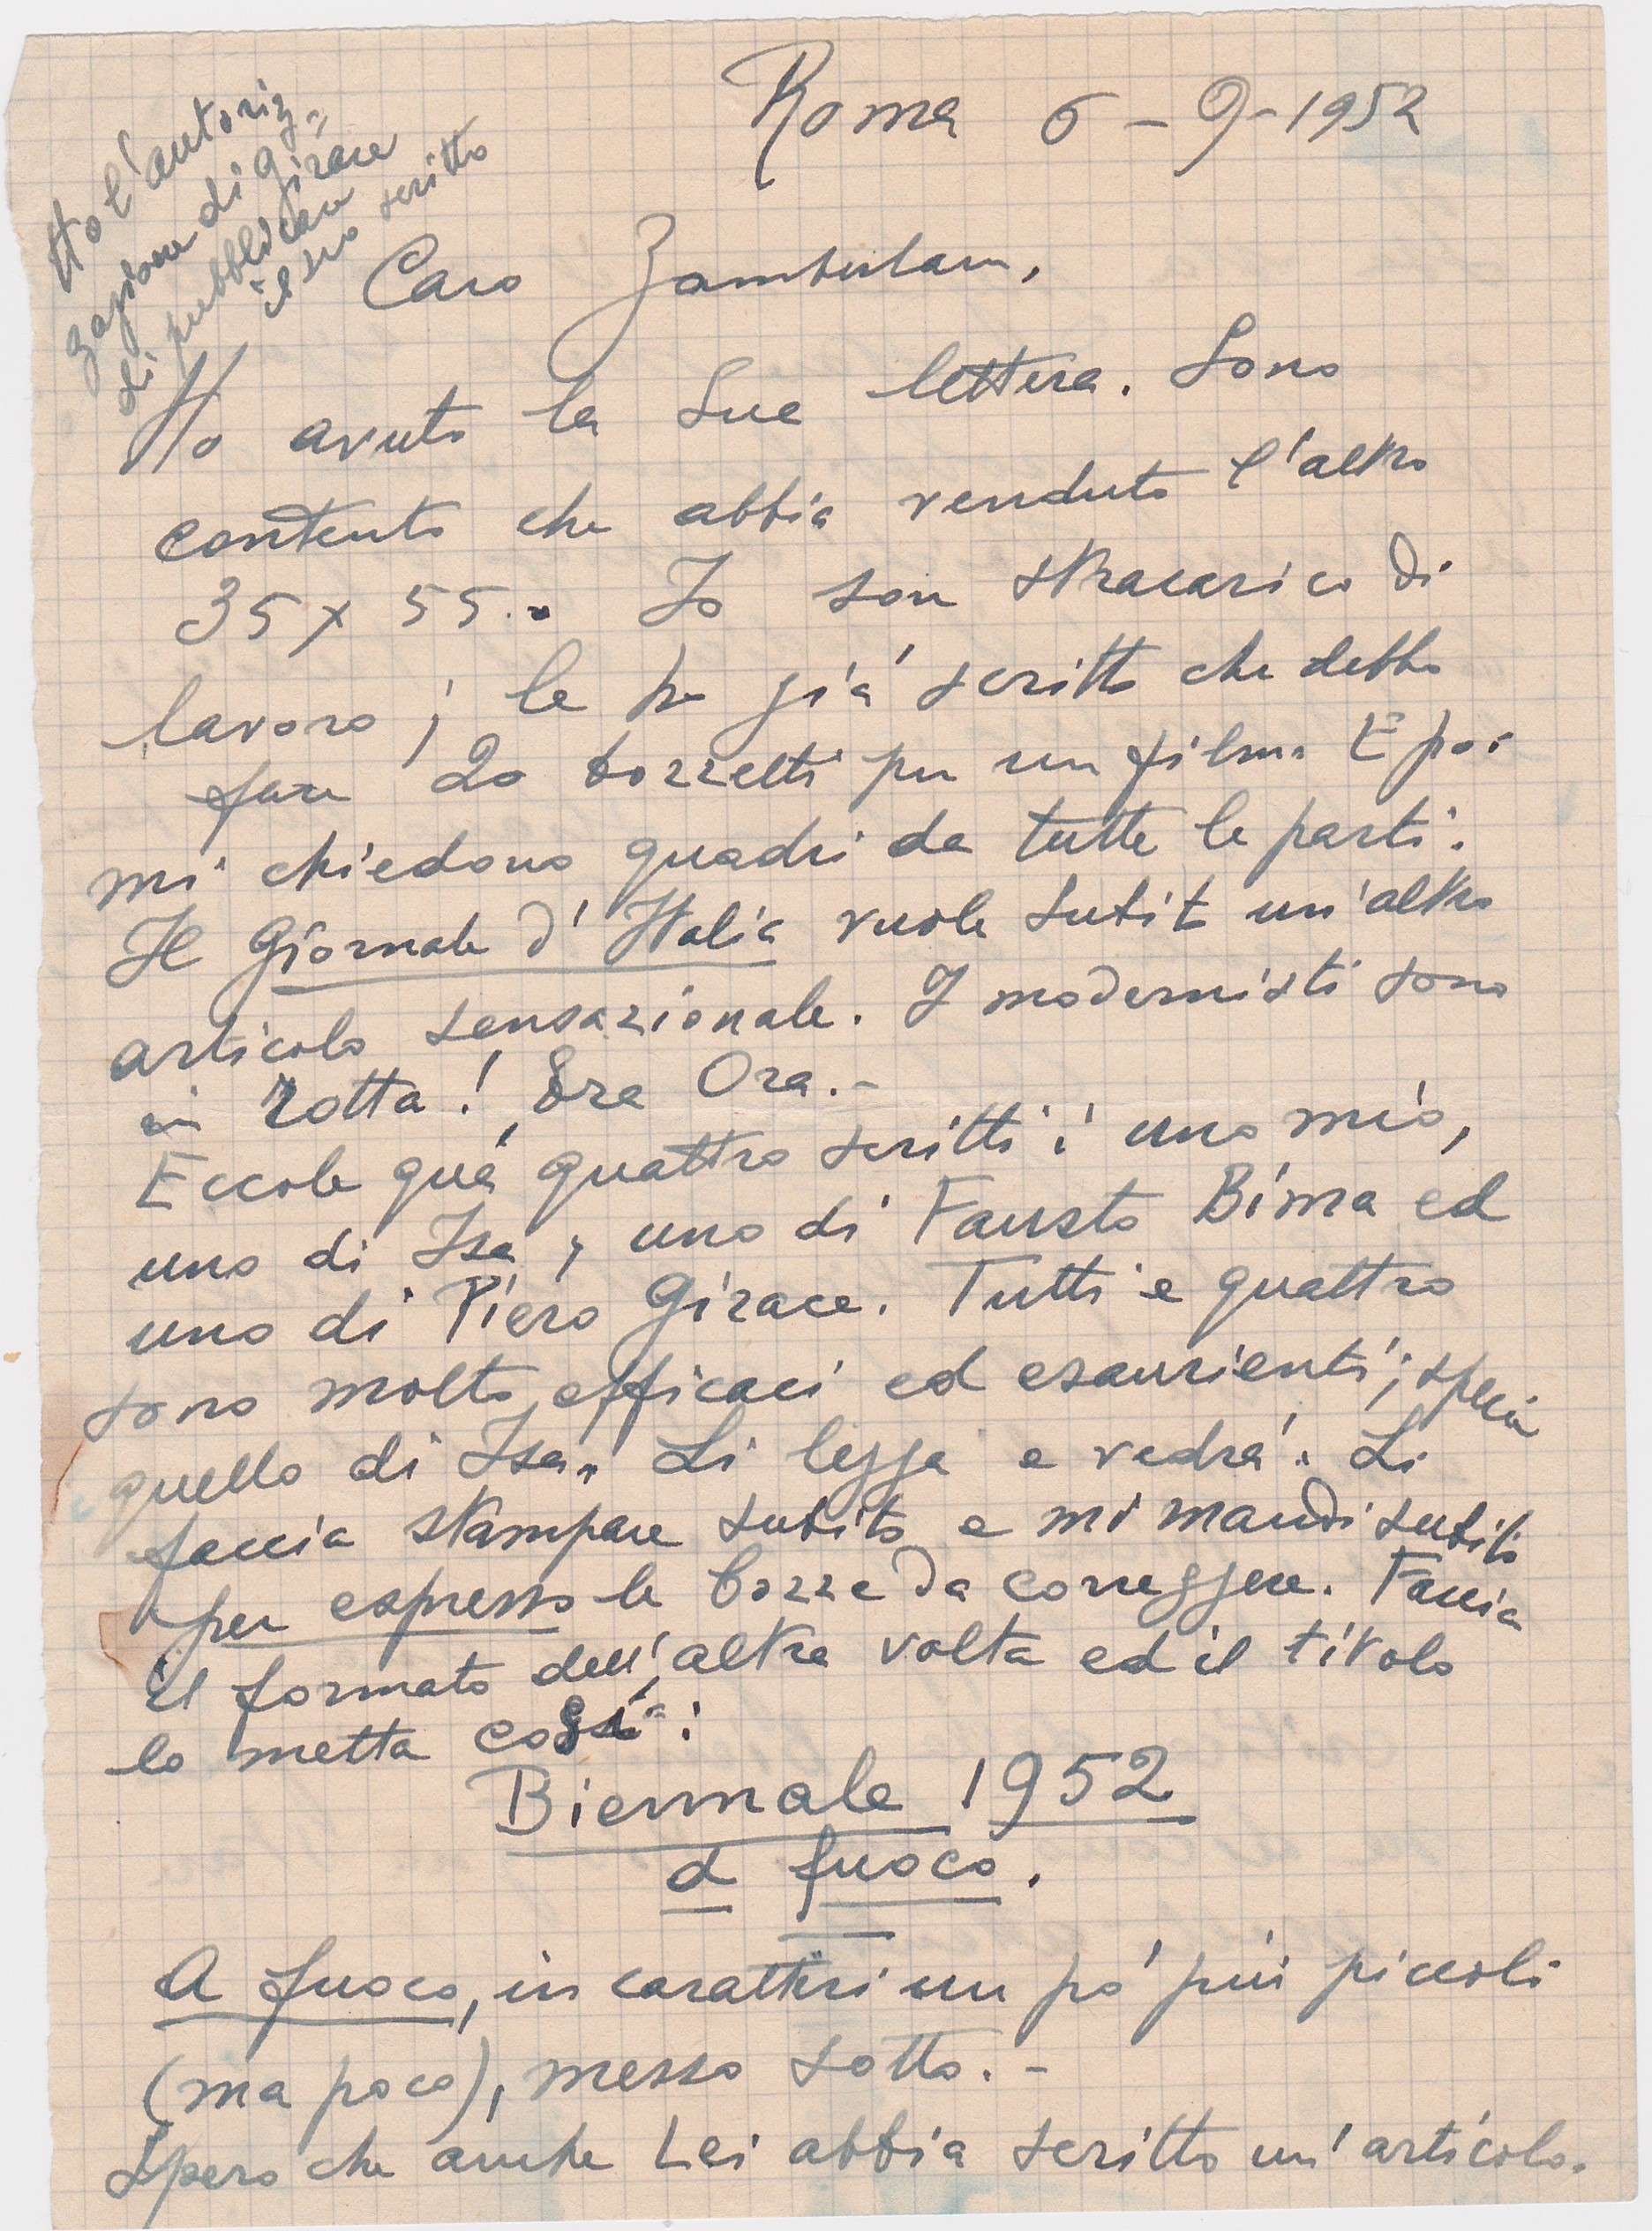 Ho l'autoriz-
zazione di Girace
di pubblicare
il suo scritto
Roma 6-9-1952
Caro Zamberlan,
Ho avuto la Sua lettera. Sono
contento che abbia venduto l'altro
35 x 55.- Io son stracarico di
lavoro; le ho già scritto che debbo
fare 20 bozzetti per un film. E poi
mi chiedono quadri da tutte le parti.
Il Giornale d'Italia vuole subito un'altro
articolo sensazionale. I modernisti sono
in rotta! Era Ora.-
Eccole quà quattro scritti: uno mio,
uno di Isa, uno di Fausto Bima ed
uno di Piero Girace. Tutti e quattro
sono molto efficaci ed esaurienti; specie
quello di Isa. Li legga e vedrà. Li
faccia stampare subito e mi mandi subito
per espresso le bozze da correggere. Faccia
il formato dell'altra volta ed il titolo
lo metta così:
Biennale 1952
a fuoco.
A fuoco, in caratteri un pò più piccoli
(ma poco), messo sotto.-
Spero che anche Lei abbia scritto un'articolo.